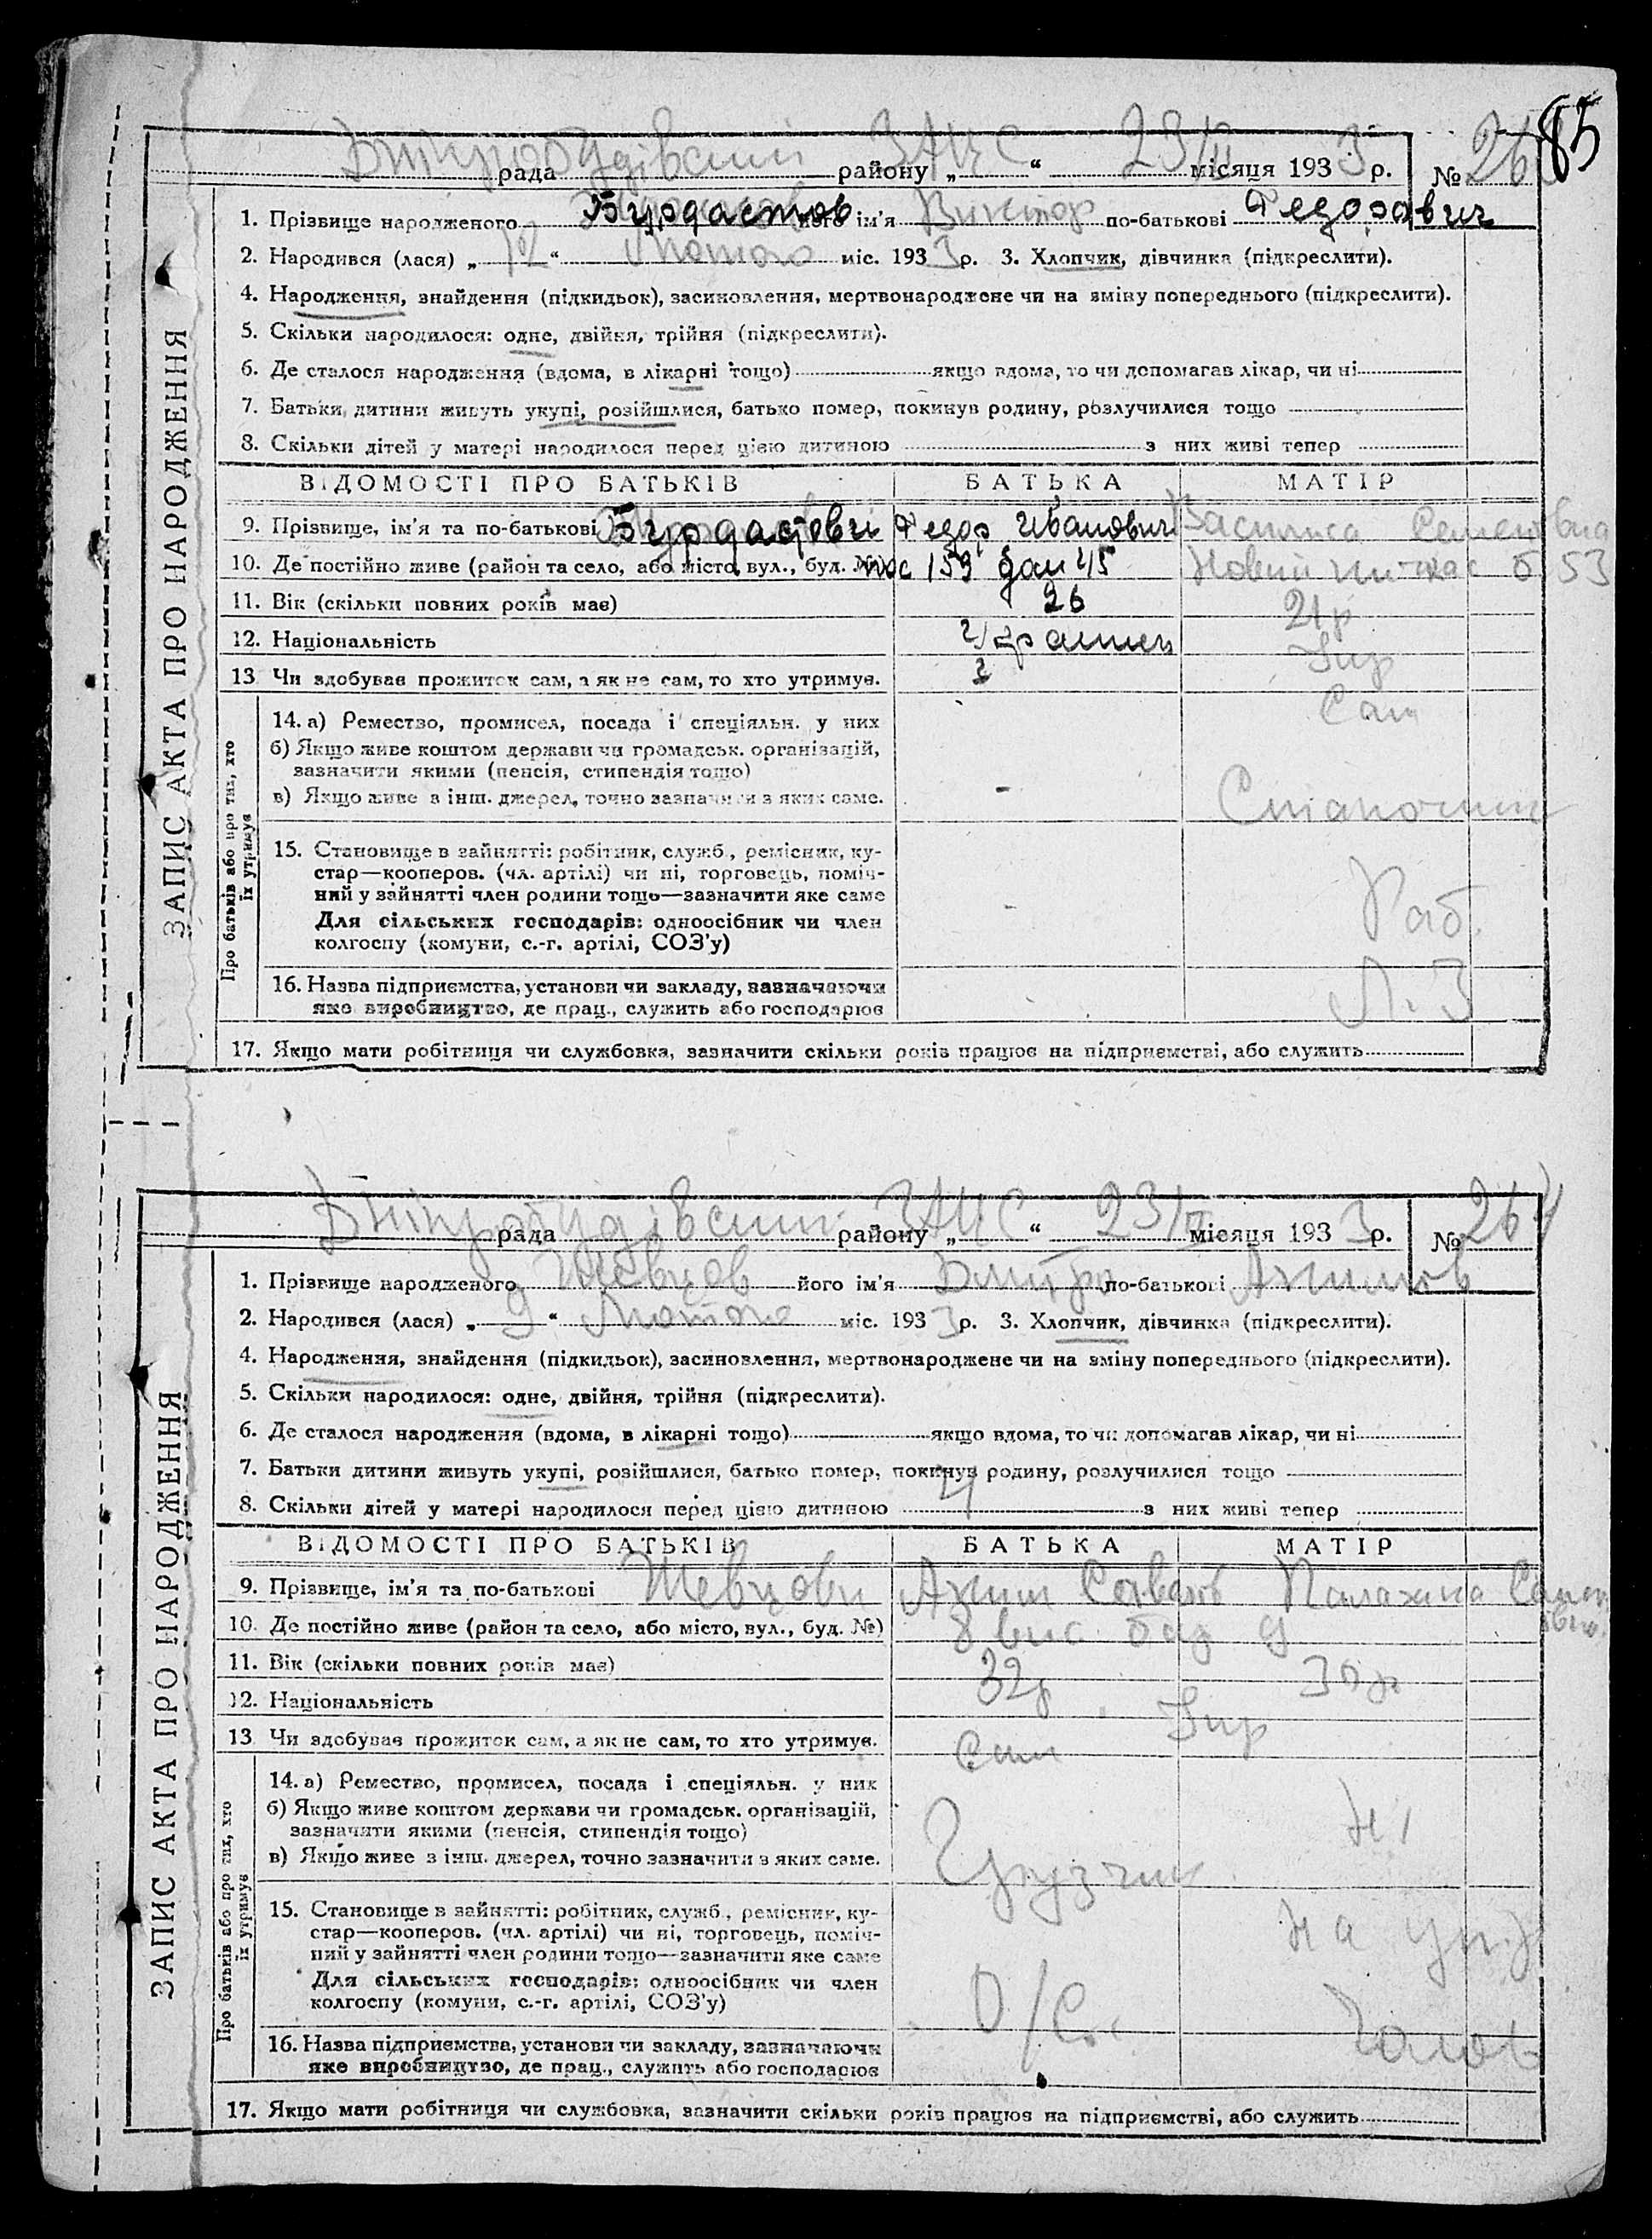 85
Дніпробудівський рада району „ ЗАЦС “ 23/II місяця 1933 р. №
1. Прізвище народженого Бурдастов його ім'я Виктор по-батькові Федорович
2. Народився (лася) „ 12 “ Лютого міс. 1933 р. 3. Хлопчик, дівчинка (підкреслити).
4. Народження, знайдення (підкидьок), засиновлення, мертвонароджене чи на зміну попереднього (підкреслити).
5. Скільки народилося: одне, двійня, трійня (підкреслити).
6. Де сталося народження (вдома, в лікарні тощо) якщо вдома, то чи допомагав лікар, чи ні
7. Батьки дитини живуть укупі, розійшлися, батько помер, покинув родину, розлучилися тощо
8. Скільки дітей у матері народилося перед цією дитиною з них живі тепер
ВІДОМОСТІ ПРО БАТЬКІВ БАТЬКА МАТІР
9. Прізвище, ім'я та по-батькові Бурдастови Федор Иванович Василиса Семеновна
10. Де постійно живе (район та село, або місто, вул., буд. №) пос 159 дом 45 Новий Кичкас б 53
11. Вік (скільки повних років має) 26 21р
12. Національність Украинец Укр
13 Чи здобував прожиток сам, а як не сам, то хто утримує. Сам
14. а) Ремество, промисел, посада і спеціяльн. у них
б) Якщо живе коштом держави чи громадськ. організацій,
зазначити якими (пенсія, стипендія тощо)
в) Якщо живе з інш. джерел, точно зазначити з яких саме. -
15. Становище в зайнятті: робітник, служб., ремісник, ку-
стар—кооперов. (чл. артілі) чи ні, торговець, поміч-
ний у зайнятті член родини тощо—зазначити яке саме - Раб.
Для сільських господарів: одноосібник чи член
колгоспу (комуни, с.-г. артілі, СОЗ'у)
16. Назва підприємства, установи чи закладу, зазначаючи
яке виробництво, де прац., служить або господарює Л. З
17. Якщо мати робітниця чи службовка, зазначити скільки років працює на підприємстві, або служить
ЗАПИС АКТА ПРО НАРОДЖЕННЯ
Про батьків або про тих, хто
їх утримує
Дніпробудівський рада району „ ЗАЦС “ 23/II місяця 1933 р. № 264
1. Прізвище народженого Шевцов його ім'я Дмитро по-батькові Акимов
2. Народився (лася) „ 9 “ Лютого міс. 1933 р. 3. Хлопчик, дівчинка (підкреслити).
4. Народження, знайдення (підкидьок), засиновлення, мертвонароджене чи на зміну попереднього (підкреслити).
5. Скільки народилося: одне, двійня, трійня (підкреслити).
6. Де сталося народження (вдома, в лікарні тощо) якщо вдома, то чи допомагав лікар, чи ні
7. Батьки дитини живуть укупі, розійшлися, батько помер, покинув родину, розлучилися тощо
8. Скільки дітей у матері народилося перед цією дитиною 4 з них живі тепер
ВІДОМОСТІ ПРО БАТЬКІВ БАТЬКА МАТІР
9. Прізвище, ім'я та по-батькові Шевцови Аким Палажка Семен
10. Де постійно живе (район та село, або місто, вул., буд. №)
11. Вік (скільки повних років має) 32р 30р
12. Національність Укр
13 Чи здобував прожиток сам, а як не сам, то хто утримує. Сам
14. а) Ремество, промисел, посада і спеціяльн. у них
б) Якщо живе коштом держави чи громадськ. організацій, Ні
зазначити якими (пенсія, стипендія тощо)
в) Якщо живе з інш. джерел, точно зазначити з яких саме. Грузчик
15. Становище в зайнятті: робітник, служб., ремісник, ку-
стар—кооперов. (чл. артілі) чи ні, торговець, поміч- На
ний у зайнятті член родини тощо—зазначити яке саме
Для сільських господарів: одноосібник чи член
колгоспу (комуни, с.-г. артілі, СОЗ'у) О/С.
16. Назва підприємства, установи чи закладу, зазначаючи
яке виробництво, де прац., служить або господарює
17. Якщо мати робітниця чи службовка, зазначити скільки років працює на підприємстві, або служить
ЗАПИС АКТА ПРО НАРОДЖЕННЯ
Про батьків або про тих, хто
їх утримує